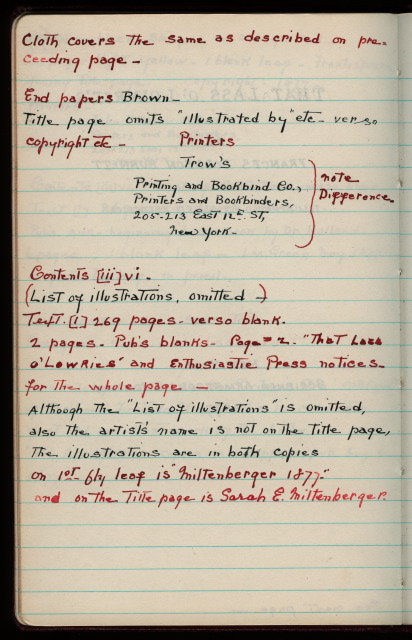 Cloth covers the same as described on pre=
ceeding page -
End papers Brown -
Title page omits "illustrated by" etc - verso
copyright etc - Printers
Trow's
Printing and Bookbind Co.,
Printers and Bookbinders,
205-213 East 12th St,
New York -
note
Difference.
Contents [iii] vi.
(List of illustrations, omitted -)
Text. [1] 269 pages - verso blank.
2 pages - Pub's blanks - Page = 2. "That Lass
O'Lowries" and Enthusiastic Press notices -
for the whole page -
Although the "List of illustrations" is omitted,
also the artists' name is not on the Title page,
The illustrations are in both copies
on 1st fly leaf is "Miltenberger 1877."
and on the Title page is Sarah E. Miltenberger.